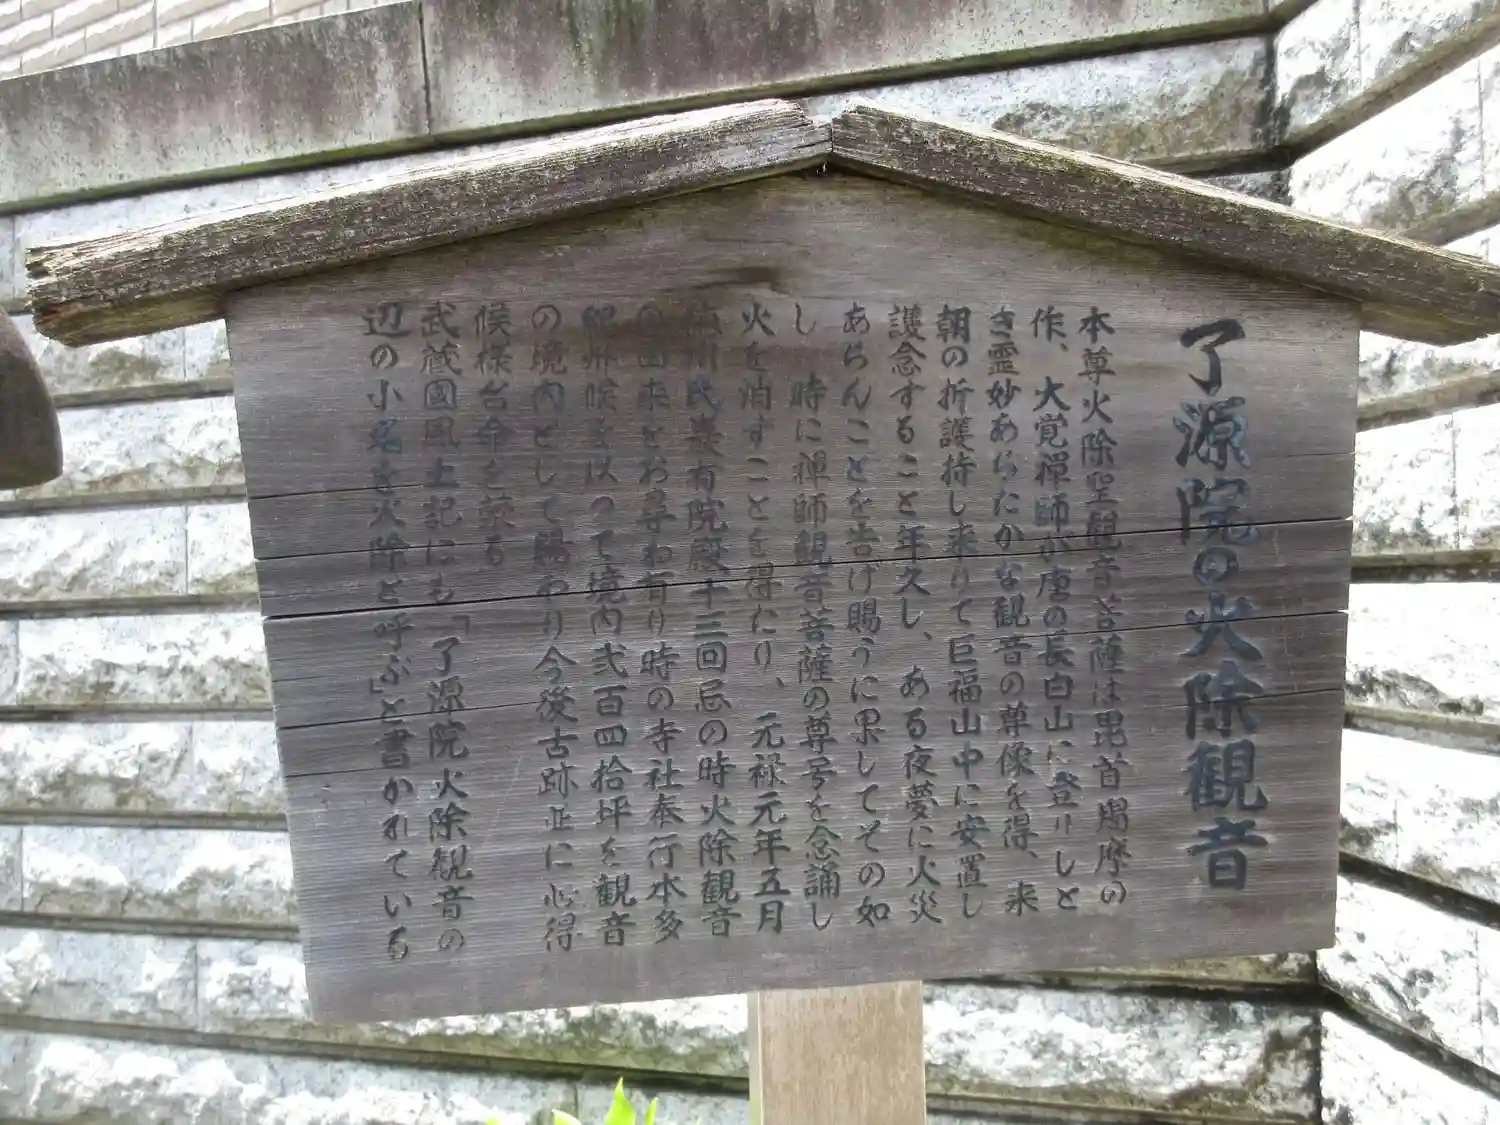 了源院の火除観音
本尊火除聖観音菩薩は毘首羯摩の
作、大覚禅師が唐の長白山に登りしと
き霊妙あらたかな観音の尊像を得、来
朝の折護持し来りて巨福山中に安置し
護念すること年久し、ある夜夢に火災
あらんことを告げ賜うに果してその如
し 時に禅師観音菩薩の尊号を念誦し
火を消すことを得たり、元禄元年五月
徳川氏巌有院殿十三回忌の時火除観音
の由来をお尋ね有り時の寺社奉行本多
紀州候を以って境内弐百四拾坪を観音
の境内として賜わり今後古跡並に心得
候様台命を蒙る
武蔵國風土記にも「了源院火除観音の
辺の小名を火除と呼ぶ」と書かれている